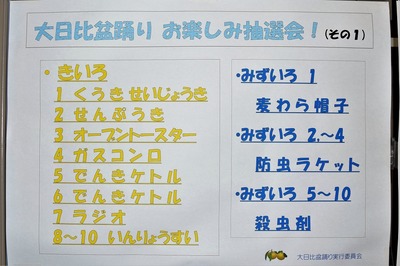 大日比盆踊り お楽しみ抽選会！(その１)
・きいろ
1 くうきせいじょうき
2 せんぷうき
3 オーブントースター
4 ガスコンロ
5 でんきケトル
6 でんきケトル
7 ラジオ
8～10 いんりょうすい
・みずいろ 1
麦わら帽子
・みずいろ 2.～4
防虫ラケット
・みずいろ 5～10
殺虫剤
大日比盆踊り実行委員会